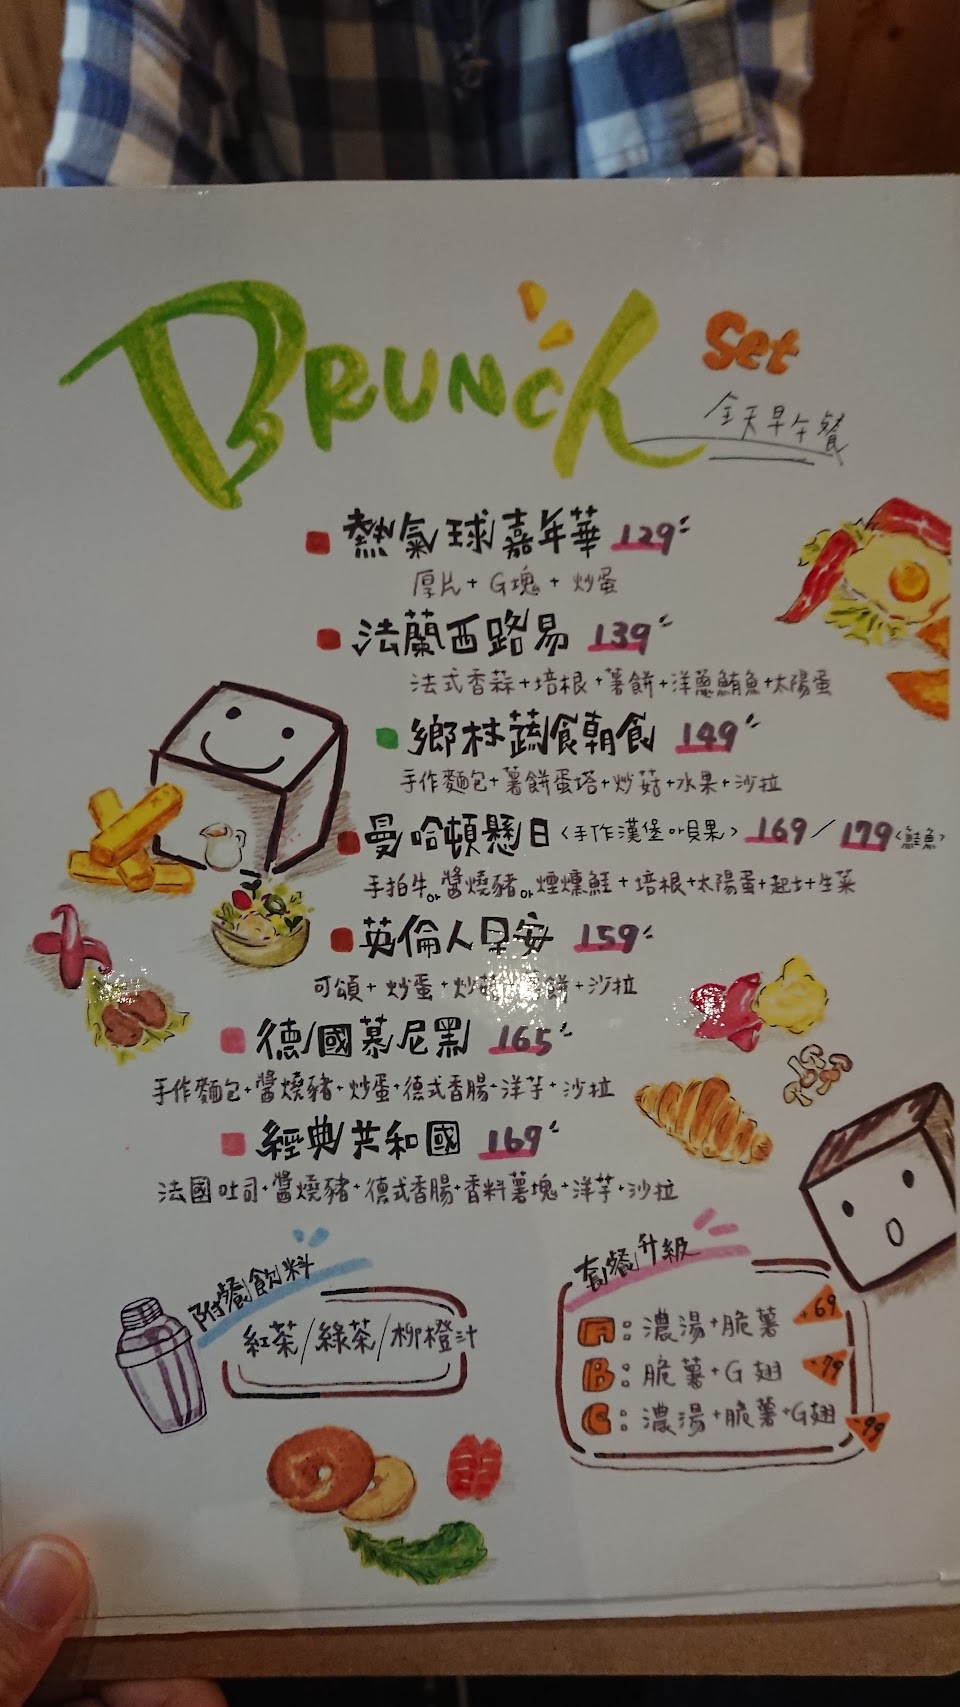 BRUNCH Set
全天早午餐
熱氣球嘉年華 129
厚片+G塊+炒蛋
法蘭西路易 139
法式香蒜+培根+薯餅+洋蔥鮪魚+太陽蛋
鄉村蔬食朝食 149
手作麵包+薯餅蛋塔+炒菇+水果+沙拉
曼哈頓懸日<手作漢堡or貝果> 169/179<鮭魚>
手拍牛or醬燒豬or煙燻鮭+培根+太陽蛋+起士+生菜
英倫人早安 159
可頌+炒蛋+炒菇+薯餅+沙拉
德國慕尼黑 165
手作麵包+醬燒豬+炒蛋+德式香腸+洋芋+沙拉
經典共和國 169
法國吐司+醬燒豬+德式香腸+香料薯塊+洋芋+沙拉
附餐飲料
紅茶/綠茶/柳橙汁
套餐升級
A:濃湯+脆薯 +69
B:脆薯+G翅 +79
C:濃湯+脆薯+G翅 +99